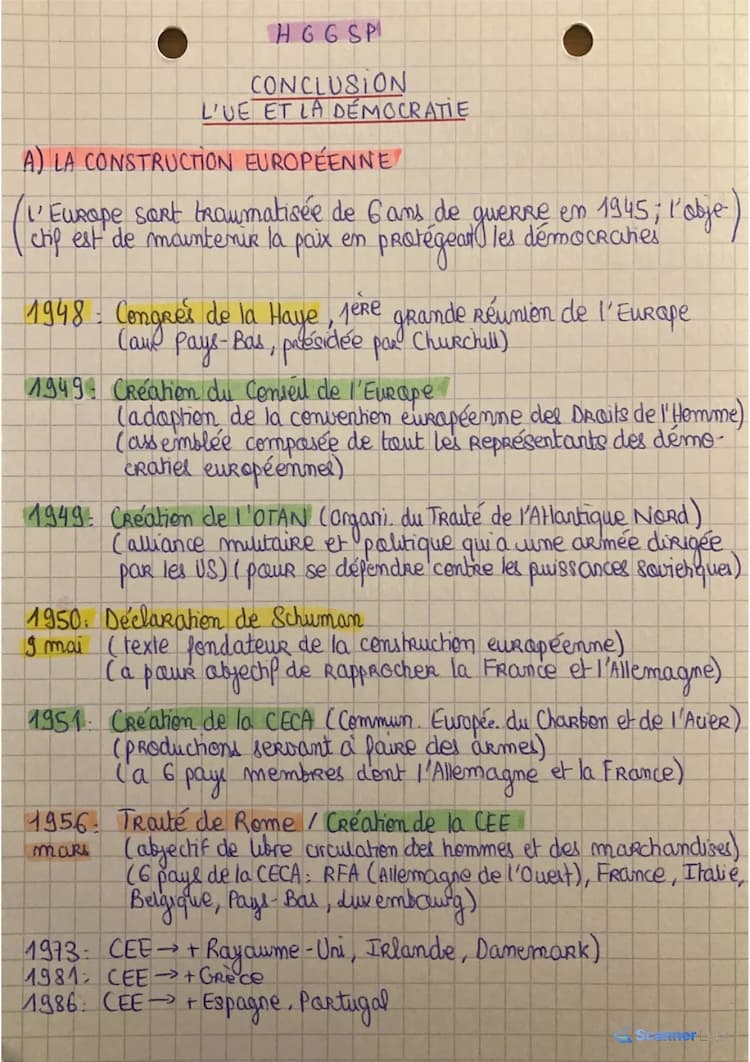 HGGSP
CONCLUSION
L'UE ET LA DÉMOCRATIE
A) LA CONSTRUCTION EUROPÉENNE
(L'Europe sort traumatisée de 6 ans de guerre en 1945; l'obje-)
ctif est de maintenir la paix en protégeant les démocraties
1948: Congrès de la Haye, 1ère grande réunion de l'Europe
(aux Pays-Bas, présidée par Churchill)
1949: Création du Conseil de l'Europe
(adoption de la convention européenne des Droits de l'Homme)
(assemblée composée de tout les représentants des démo-
craties européennes)
1949: Création de l'OTAN (Organi. du Traité de l'Atlantique Nord)
(alliance militaire et politique qui a une armée dirigée
par les US) (pour se défendre contre les puissances soviétiques)
1950: Déclaration de Schuman
9 mai (texte fondateur de la construction européenne)
(a pour objectif de rapprocher la France et l'Allemagne)
1951: Création de la CECA (Commun. Europée. du Charbon et de l'Acier)
(productions servant à faire des armes)
(a 6 pays membres dont l'Allemagne et la France)
1956: Traité de Rome / Création de la CEE
mars (objectif de libre circulation des hommes et des marchandises)
(6 pays de la CECA: RFA (Allemagne de l'Ouest), France, Italie,
Belgique, Pays-Bas, Luxembourg)
1973: CEE → + Royaume-Uni, Irlande, Danemark)
1981: CEE → + Grèce
1986: CEE → + Espagne, Portugal
Scanner